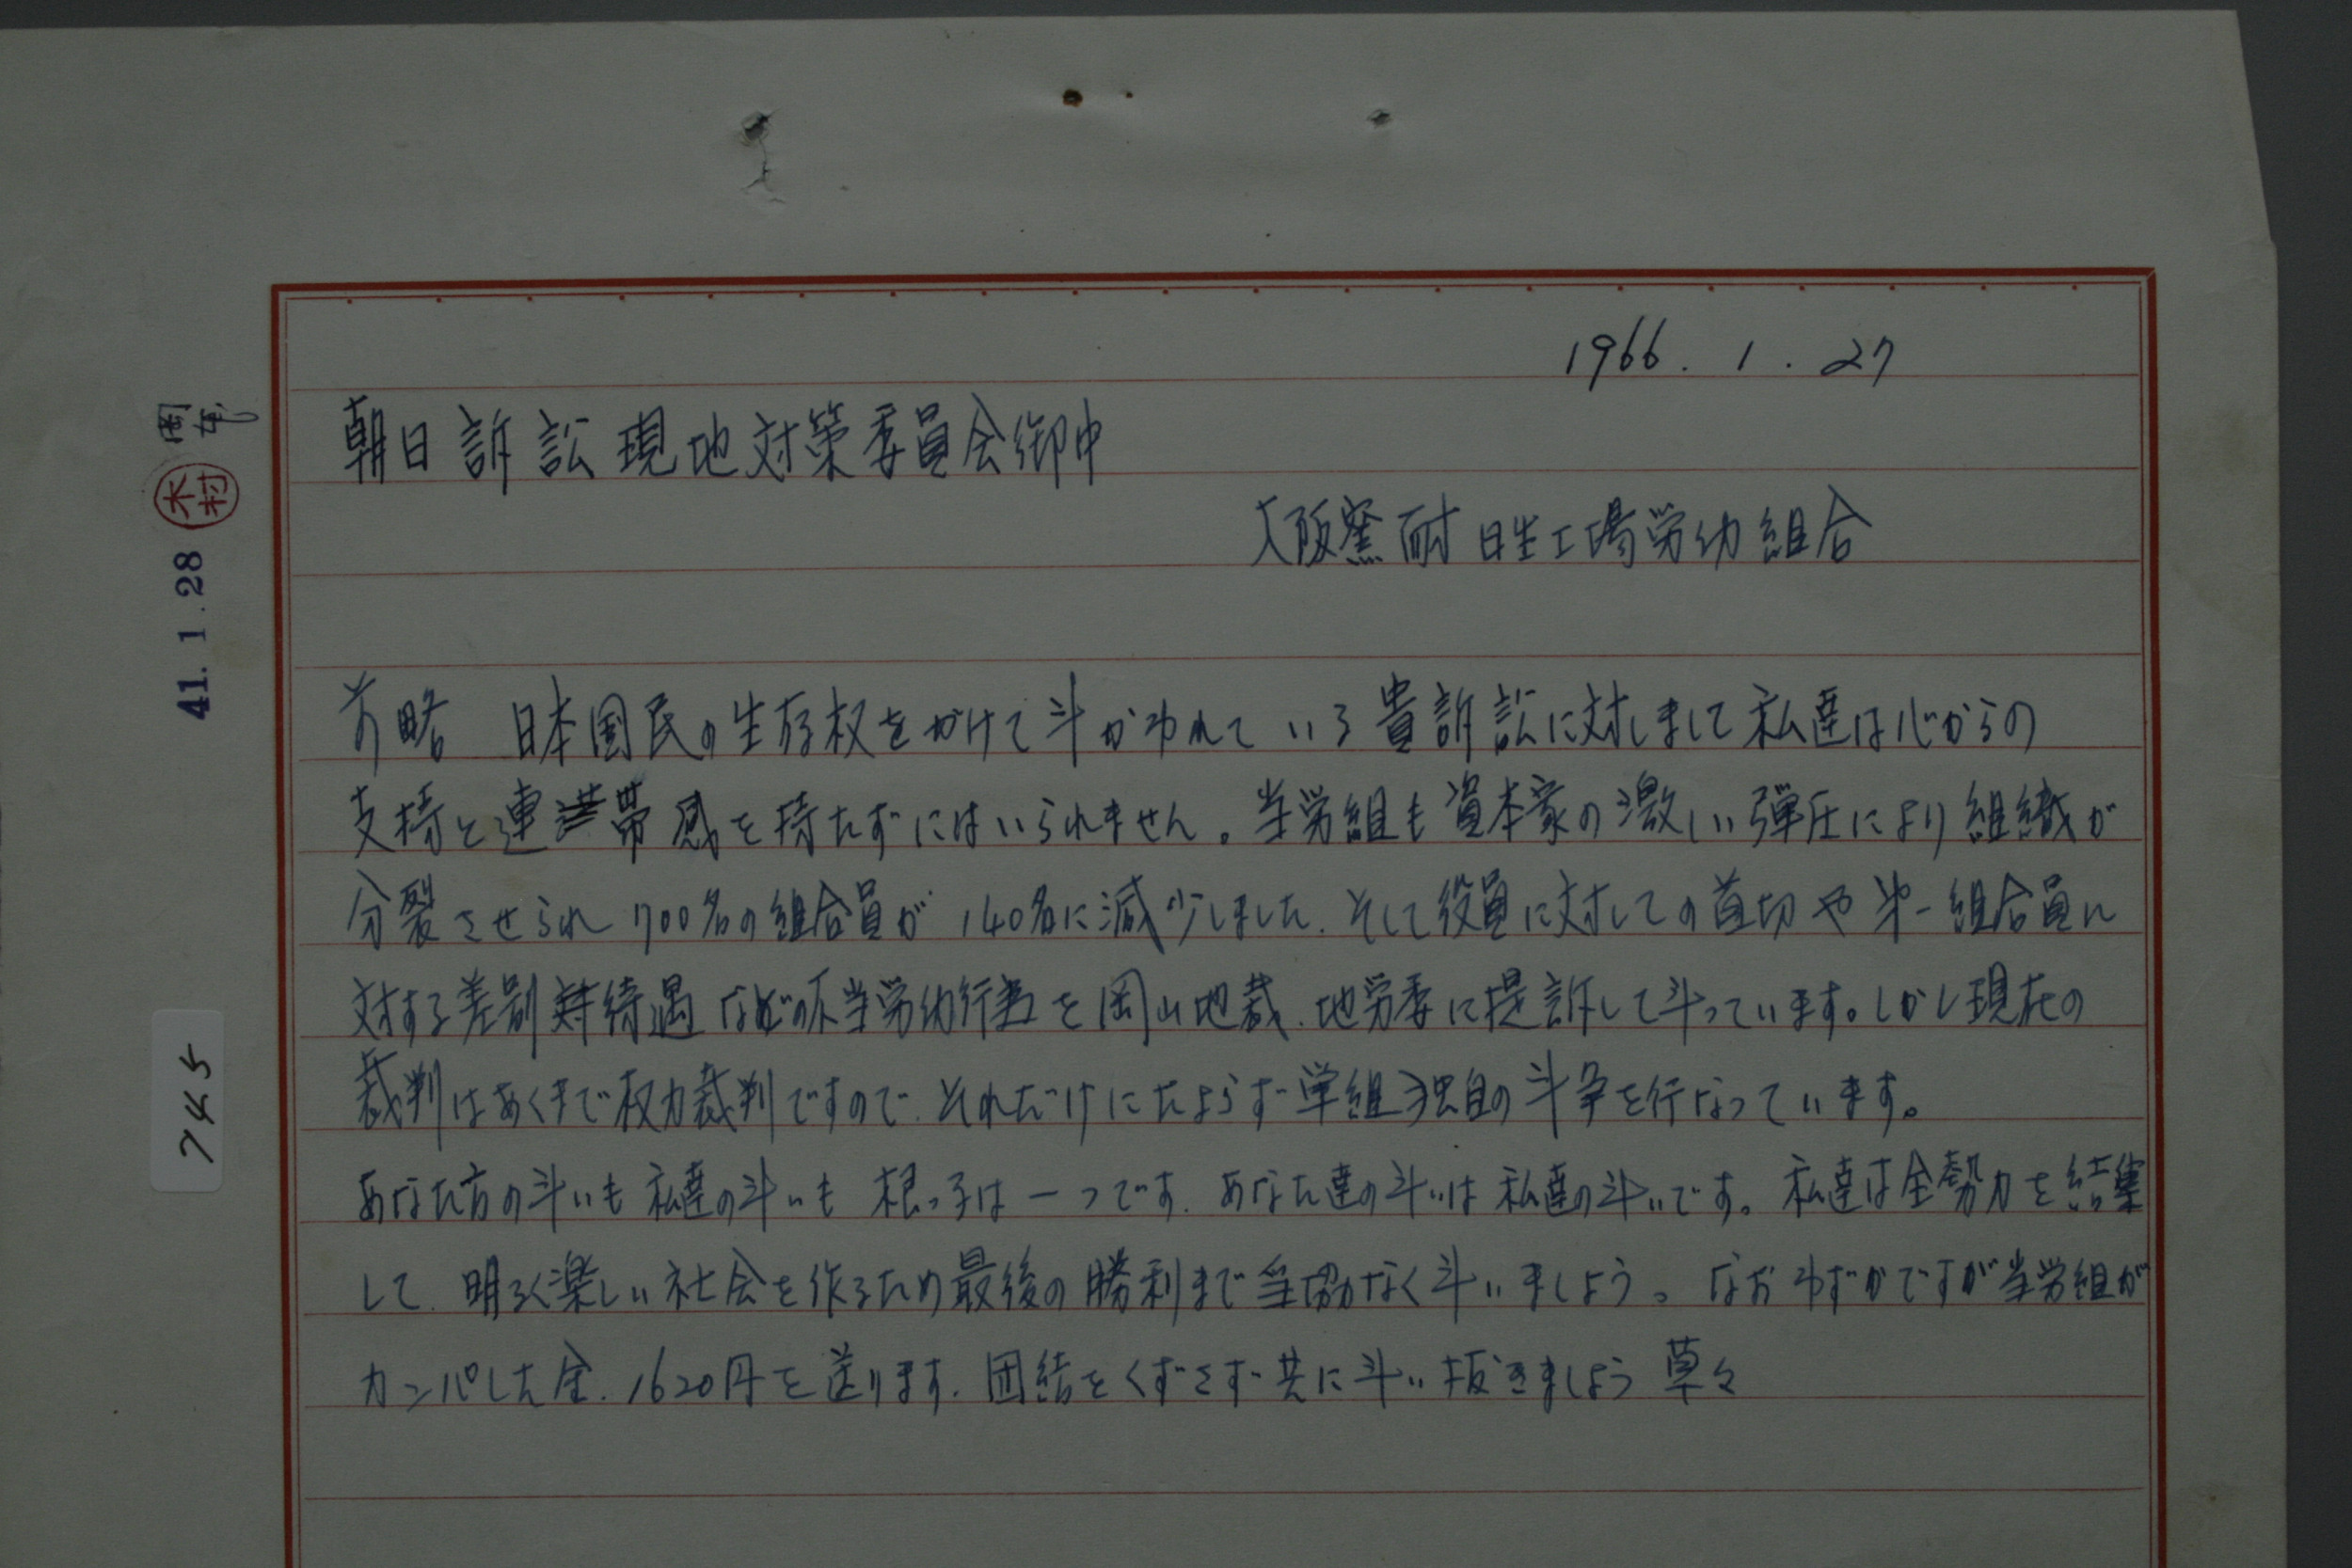 1966.1.27
朝日訴訟現地対策委員会御中
大阪窯耐日生工場労仂組合
前略 日本国民の生存权をかけて斗かわれている貴訴訟に対しまして私達は心からの
支持と連帯感を持たずにはいられません。当労組も資本家の激しい弾圧により組織が
分裂させられ700名の組合員が140名に減少しました.そして役員に対しての首切や㐧一組合員に
対する差別待遇などの不当労仂行為を岡山地裁.地労委に提訴して斗っています。しかし現在の
裁判はあくまで权力裁判ですので.それだけにたよらず単組独自の斗争を行なっています。
あなた方の斗いも私達の斗いも根っ子は一つです.あなた達の斗いは私達の斗いです。私達は全勢力を結集
して.明るく楽しい社会を作るため最後の勝利まで妥協なく斗いましょう。なおわずかですが当労組が
カンパした金.1620円を送ります.団結をくずさず共に斗い抜きましょう 草々
木村
41.1.28
745